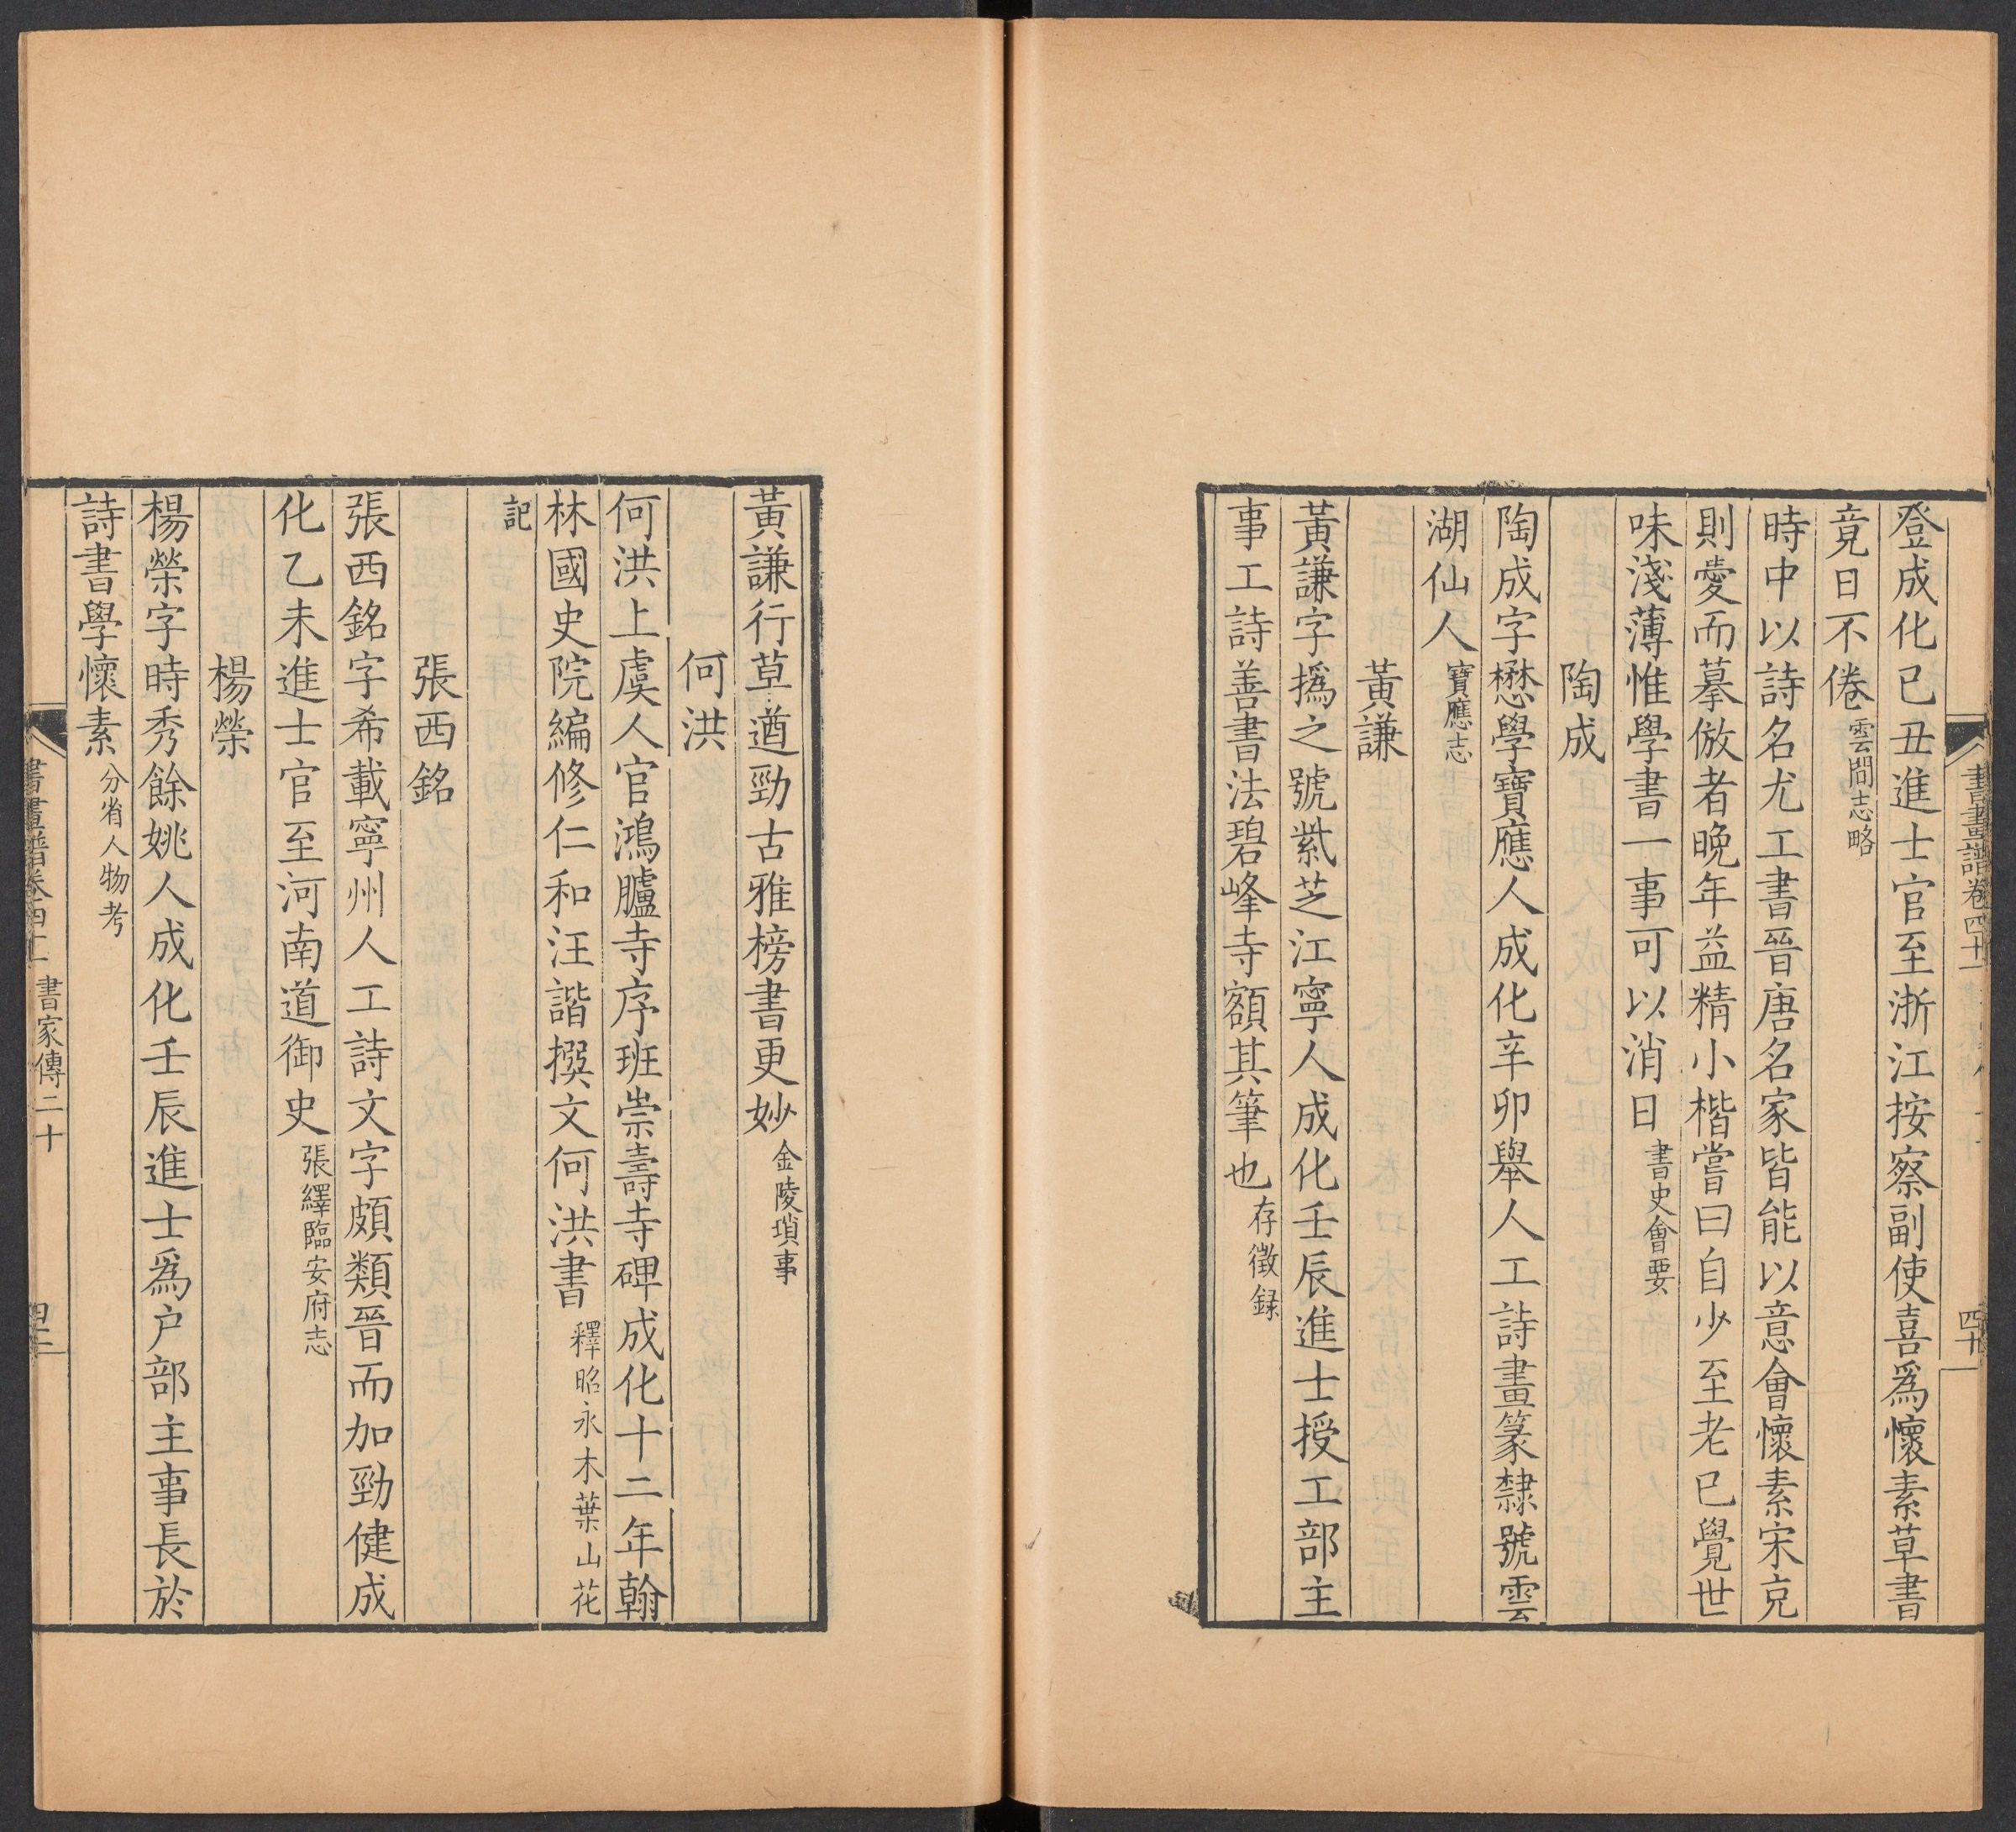 登成化己丑進士官至浙江按察副使喜爲懷素草書
竟日不倦雲間志略
時中以詩名尤工書晉唐名家皆能以意會懷素宋克
則愛而摹倣者晚年益精小楷嘗曰自少至老已覺世
味淺薄惟學書一事可以消日書史會要
陶成
陶成字懋學寶應人成化辛卯舉人工詩畫篆隸號雲
湖仙人寶應志
黃謙
黃謙字撝之號紫芝江寧人成化壬辰進士授工部主
事工詩善書法碧峰寺額其筆也存徵録
黃謙行草遒勁古雅榜書更妙金陵瑣事
何洪
何洪上虞人官鴻臚寺序班崇壽寺碑成化十二年翰
林國史院編修仁和汪諧撰文何洪書釋昭永木葉山花
記
張西銘
張西銘字希載寧州人工詩文字頗類晉而加勁健成
化乙未進士官至河南道御史張繹臨安府志
楊榮
楊榮字時秀餘姚人成化壬辰進士爲户部主事長於
詩書學懷素分省人物考
書畫譜卷四十一 書家傳二十